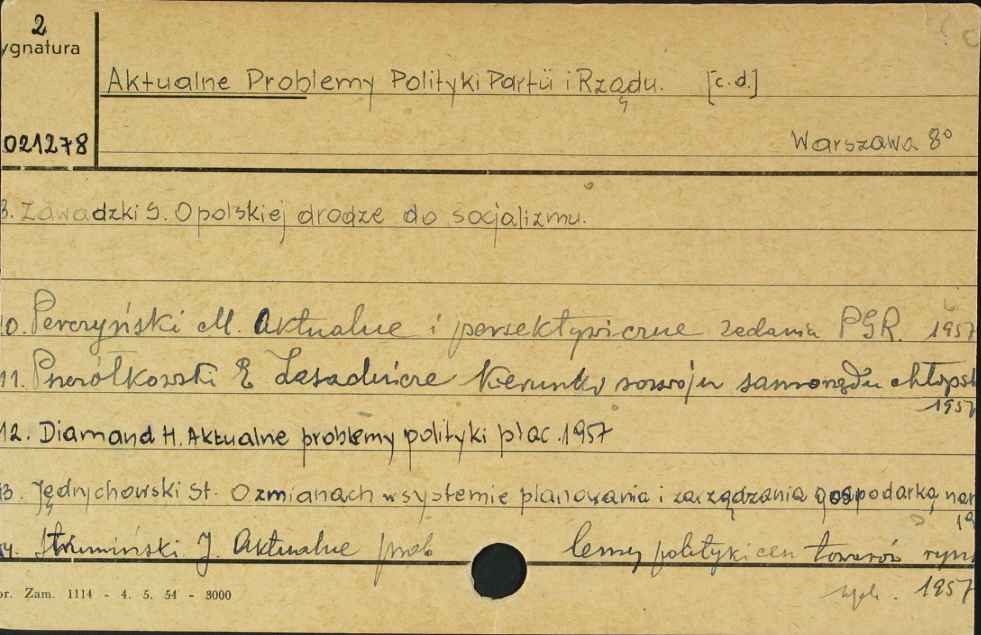 2
ygnatura
Aktualne Problemy Polityki Partii i Rządu. [c.d.]
021278
Warszawa 8°
8. Zawadzki S. O polskiej drodze do socjalizmu.
10. Perczyński M. Aktualne i perspektywiczne zadania PGR. 1957
11. Pszczółkowski E Zasadnicze kierunki rozwoju samorządu chłopsk
1957
12. Diamand H. Aktualne problemy polityki płac. 1957
13. Jędrychowski St. O zmianach w systemie planowania i zarządzania gospodarką nar
19
14. Struminski J. Aktualne problemy polityki cen towarów ryn
1957
or. Zam. 1114 - 4. 5. 54 - 3000